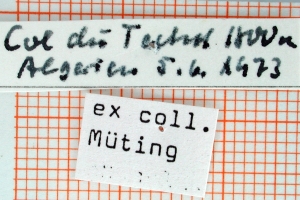 Col du Tachst 1800 m
Algerien 5.6.1973
ex coll.
Müting